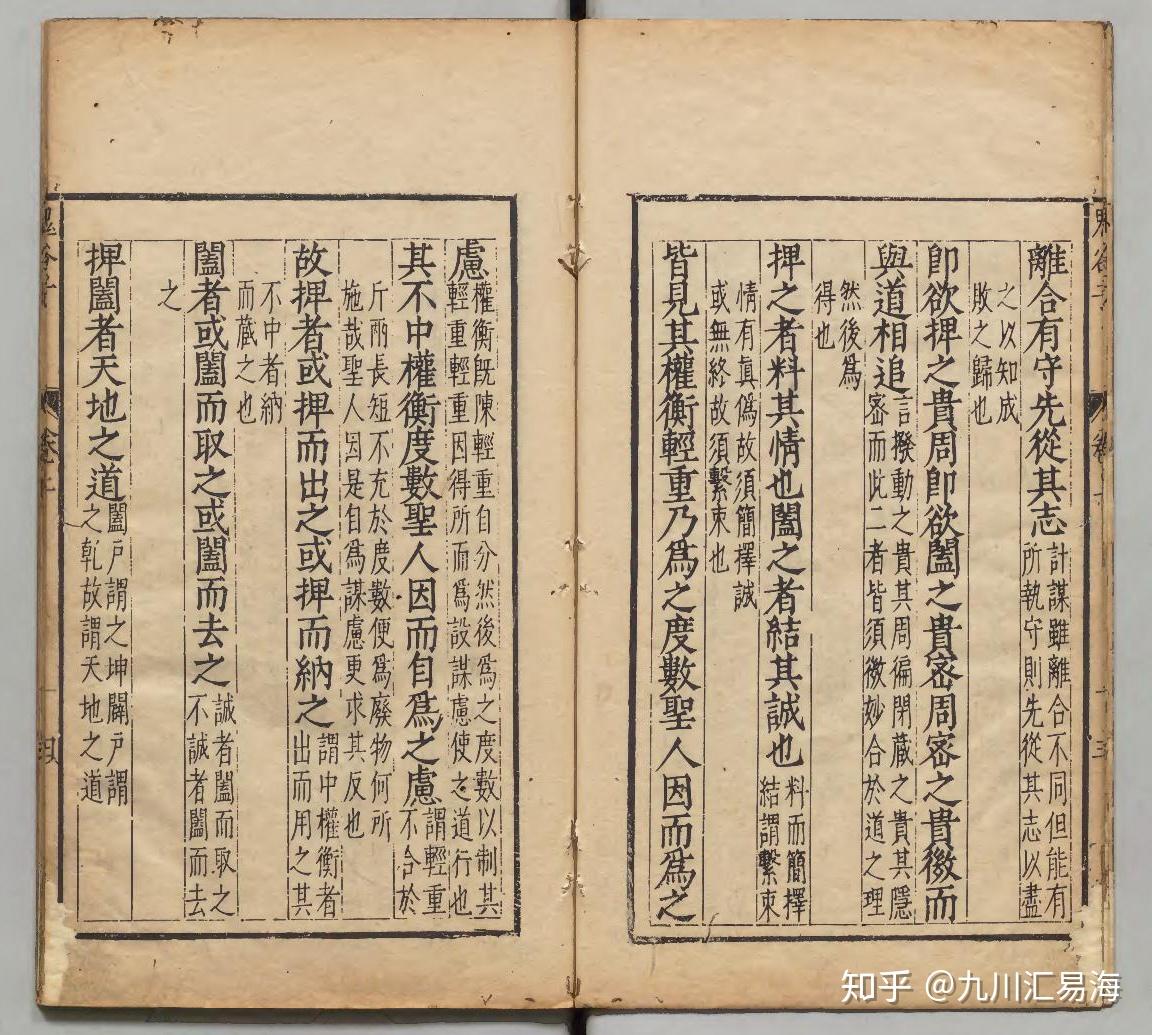 離合有守先從其志
計謀雖離合不同但能有
所執守則先從其志以盡
之以知成
敗之歸也
即欲捭之貴周即欲闔之貴密周密之貴微而
與道相追
言撥動之貴其周徧閉藏之貴其隱
密而此二者皆須微妙合於道之理
然後爲
得也
捭之者料其情也闔之者結其誠也
料而簡擇
結謂繫束
情有真僞故須簡擇誠
或無終故須繫束也
皆見其權衡輕重乃爲之度數聖人因而爲之
慮
權衡旣陳輕重自分然後爲之度數以制其
輕重輕重因得所而爲設謀慮使之道行也
其不中權衡度數聖人因而自爲之慮
謂輕重
不合於
斤兩長短不充於度數便爲廢物何所
施哉聖人因是自爲謀慮更求其反也
故捭者或捭而出之或捭而納之
謂中權衡者
出而用之其
不中者納
而藏之也
闔者或闔而取之或闔而去之
誠者闔而取之
不誠者闔而去
之
捭闔者天地之道
闔戶謂之坤闢戶謂
之乾故謂天地之道
四
知乎 @九川汇易海